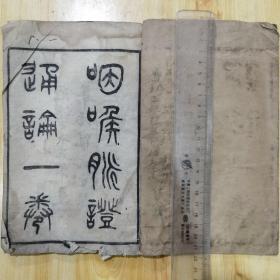 咽喉脉證
通論一卷